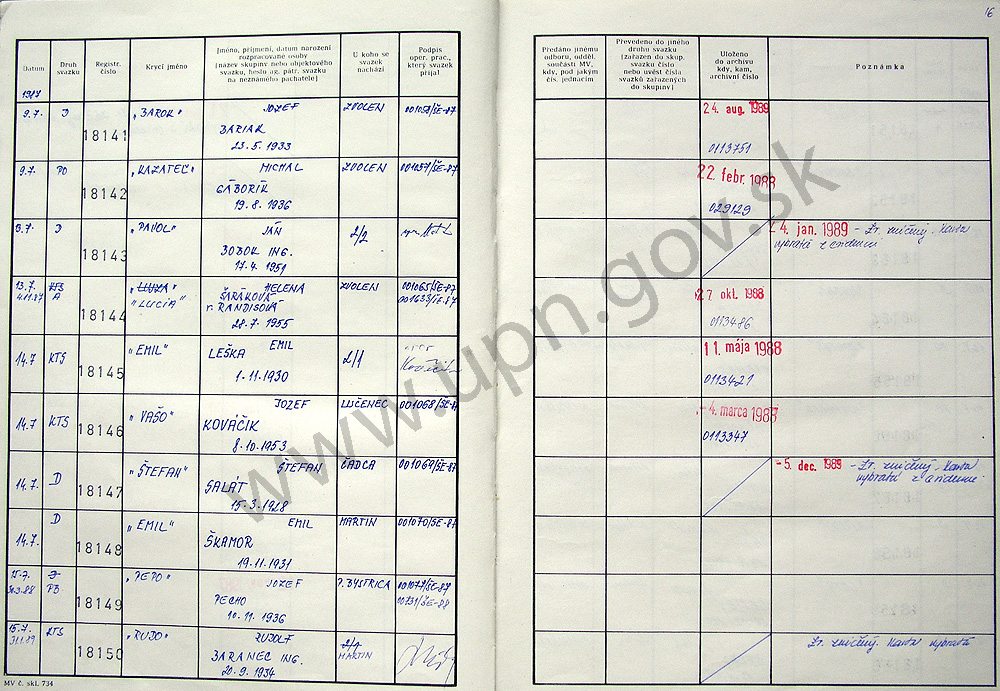 16
Datum
Druh svazku
Registr. číslo
Krycí jméno
Jméno, příjmení, datum narození
rozpracované osoby
(název skupiny nebo objektového
svazku, heslo ag. pátr. svazku
na neznámého pachatele)
U koho se
svazek
nachází
Podpis
oper. prac.,
který svazek
přijal
Předáno jinému
odboru, odděl.
součásti MV,
kdy, pod jakým
čís. jednacím
Převedeno do jiného
druhu svazku
(zařazen do skup.
svazku číslo
nebo uvést čísla
svazků zařazených
do skupiny)
Uloženo
do archivu
kdy, kam,
archivní číslo
Poznámka
1987
9.7. D 18141 „BAROK" JOZEF ZVOLEN 001058/ŠE-87 24. aug. 1989
BARIAK
23.5.1933 0113751
9.7. PO 18142 „KAZATEĽ" MICHAL ZVOLEN 001057/ŠE-87 22. febr. 1988
GÁBORÍK
19.8.1936 029129
D 18143 „PAVOL" JÁN 2/2 - 4. jan. 1989 - Zv. zničený. Karta
BOBOK ING. vybratá z evidencie
17.4.1951
13.7. KTS 18144 „LUCIA" HELENA ZVOLEN 001065/ŠE-87 27 okt. 1988
A ŠARÁKOVÁ 001633/ŠE-87
r. RANDISOVÁ
28.7.1955 0113486
14.7 KTS 18145 „EMIL" EMIL 2/1 11. mája 1988
LEŠKA
1.11.1930 0113421
14.7 KTS 18146 „VAŠO" JOZEF LUČENEC 001068/ŠE-87 - 4. marca 1988
KOVÁČIK
8.10.1953 0113347
14.7. D 18147 „ŠTEFAN" ŠTEFAN ČADCA 001069/ŠE-87 - 5. dec. 1989 - Zv. zničený. Karta
SALÁT vybratá z evidencie
15.3.1928
14.7. D 18148 „EMIL" EMIL MARTIN 001070/ŠE-87
ŠKAMOR
19.11.1931
15.7. D 18149 „PEPO" JOZEF P. BYSTRICA 001077/ŠE-87
PB PECHO 00731/ŠE-88
10.11.1936
15.7. KTS 18150 „RUDO" RUDOLF MARTIN Zv. zničený. Karta vybratá
BARANEC ING.
20.9.1934
MV č. skl. 734
www.upn.gov.sk